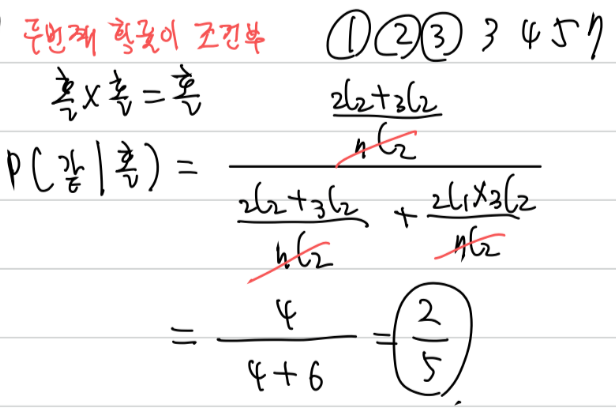 두번째 조건부 ① ② ③ 3 4 5 7
홀×홀=홀
P(같|홀) = \frac{\frac{2C2+3C2}{7C2}}{\frac{2C2+3C2}{7C2} + \frac{2C1×3C2}{7C2}}
= \frac{4}{4+6} = \frac{2}{5}